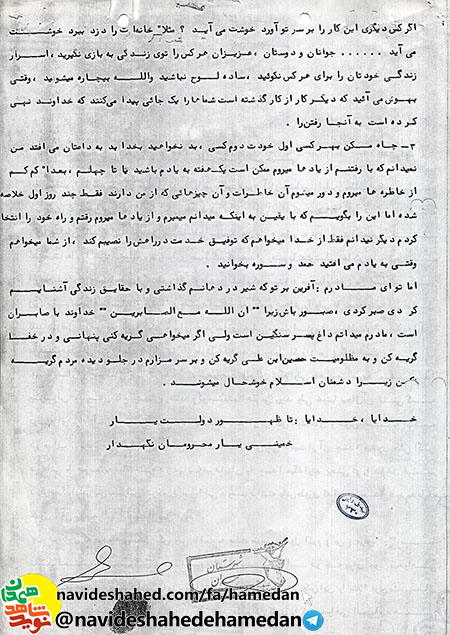 اگر کسی دیگری این کار را بر سر تو آورد خوشت می آید ؟ مثلا" خانه ات را دزد ببرد خوشت
می آید ...... جوانان و دوستان ، عزیزان هرکس را توی زندگی به بازی نگیرید ، اسرار
زندگی خودتان را برای هرکس نگوئید ، ساده لوح نباشید والله بیچاره میشوید ، وقتی
بهوش می آئید که دیگر کار از کار گذشته است شماها را یک جائی پیدا می کنند که خداوند نهی
کرده است به آنجا رفتن را .
۳- چاه مکن بهر کسی اول خودت دوم کسی ، بد نخواهید بخدا بد به دامتان می افتد من
نمیدانم که با رفتنم از یادها میروم ممکن است یک هفته به یادم باشید یا تا چهلم ، بعدا" کم کم
از خاطره ها میروم و دور میشوم آن خاطرات و آن چیزهائی که از من دارند فقط چند روز اول خلاصه
شده اما این را بگویم که با یقین به اینکه میدانم میمیرم و از یادها میروم رفتم و راه خود را انتخا
کردم دیگر نیدانم فقط از خدا میخواهم که توفیق خدمت در راهش را نصیبم کند ، از شما میخواهم
وقتی به یادم می افتید حمد و سوره بخوانید .
اما تو ای مادرم : آفرین بر تو که شیر در دهانم گذاشتی و با حقایق زندگی آشنایم
کردی صبر کردی ، صبور باش زیرا " ان الله مع الصابرین " خداوند با صابران
است ، مادرم میدانم داغ پسر سنگین است ولی اگر میخواهی گریه کنی پنهانی و در خفا
گریه کن و به مظلومیت حسین ابن علی گریه کن و بر سر مزارم در جلو دیده مردم گریه
نکن زیرا دشمنان اسلام خوشحال میشوند .
خدایا ، خدایا : تا ظهور دولت یار
خمینی یار محرومان نگهدار
شهرستان
navideshahed.com/fa/hamedan
@navideshahedehamedan
نوید شاهد همدان